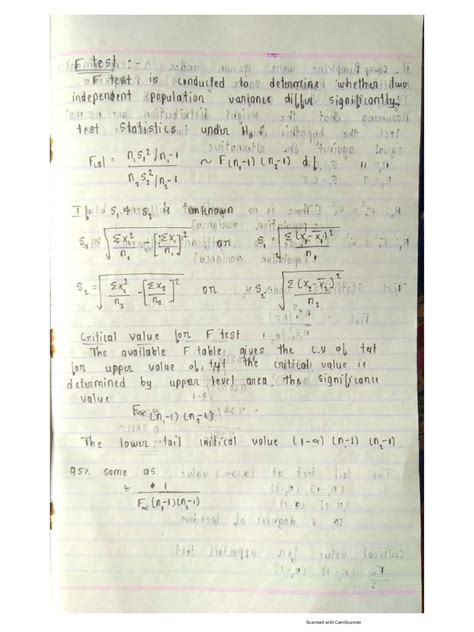 F test :-
F test is conducted to determine whether two
independent population variance differ significantly,
test statistics under H₀ :
Fcal = n₁S₁²/n₁-1 / n₂S₂²/n₂-1 ~ F(n₁-1)(n₂-1) d.f.
If S₁ & S₂ is unknown
S₁ = √(Σx₁²/n₁ - [Σx₁/n₁]²) or S₁ = √(Σ(x₁-x̄₁)²/n₁)
S₂ = √(Σx₂²/n₂ - [Σx₂/n₂]²) or S₂ = √(Σ(x₂-x̄₂)²/n₂)
Critical value for F test :
The available F table gives the c.v of
for upper value of, the critical value is
determined by upper level area the significance
value
F∝ (n₁-1) (n₂-1)
The lower tail critical value (1-∝) (n₁-1) (n₂-1).
95% same as
= 1 / F∝ (n₂-1)(n₁-1)
Scanned with CamScanner